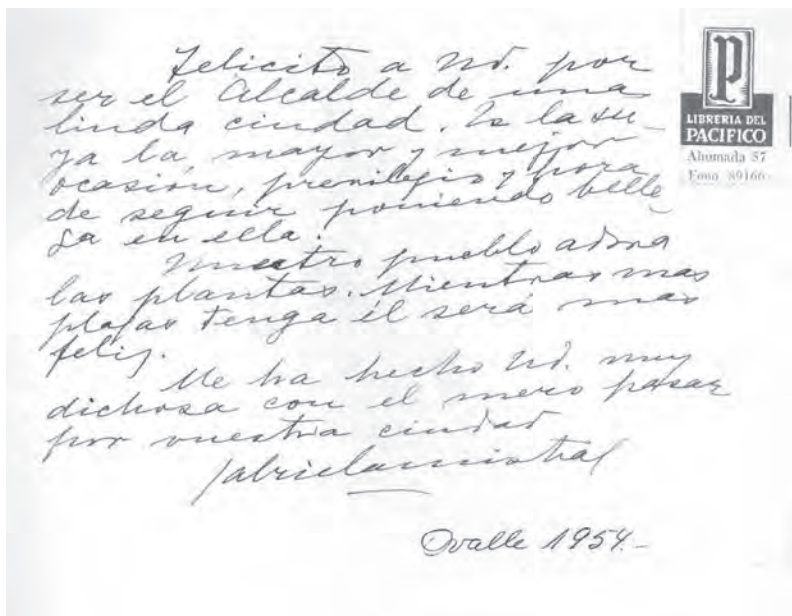 Felicito a Ud. por
ser el Alcalde de una
linda ciudad. Es la su-
ya la mayor y mejor
ocasión, previlegio y hora
de seguir poniendo belle
za en ella.
Nuestro pueblo adora
las plantas. Mientras mas
plazas tenga él será mas
feliz.
Me ha hecho Ud. muy
dichosa con el mero pasar
por vuestra ciudad
Gabriela mistral
Ovalle 1954.-
P
LIBRERIA DEL
PACIFICO
Ahumada 57
Fono 89166